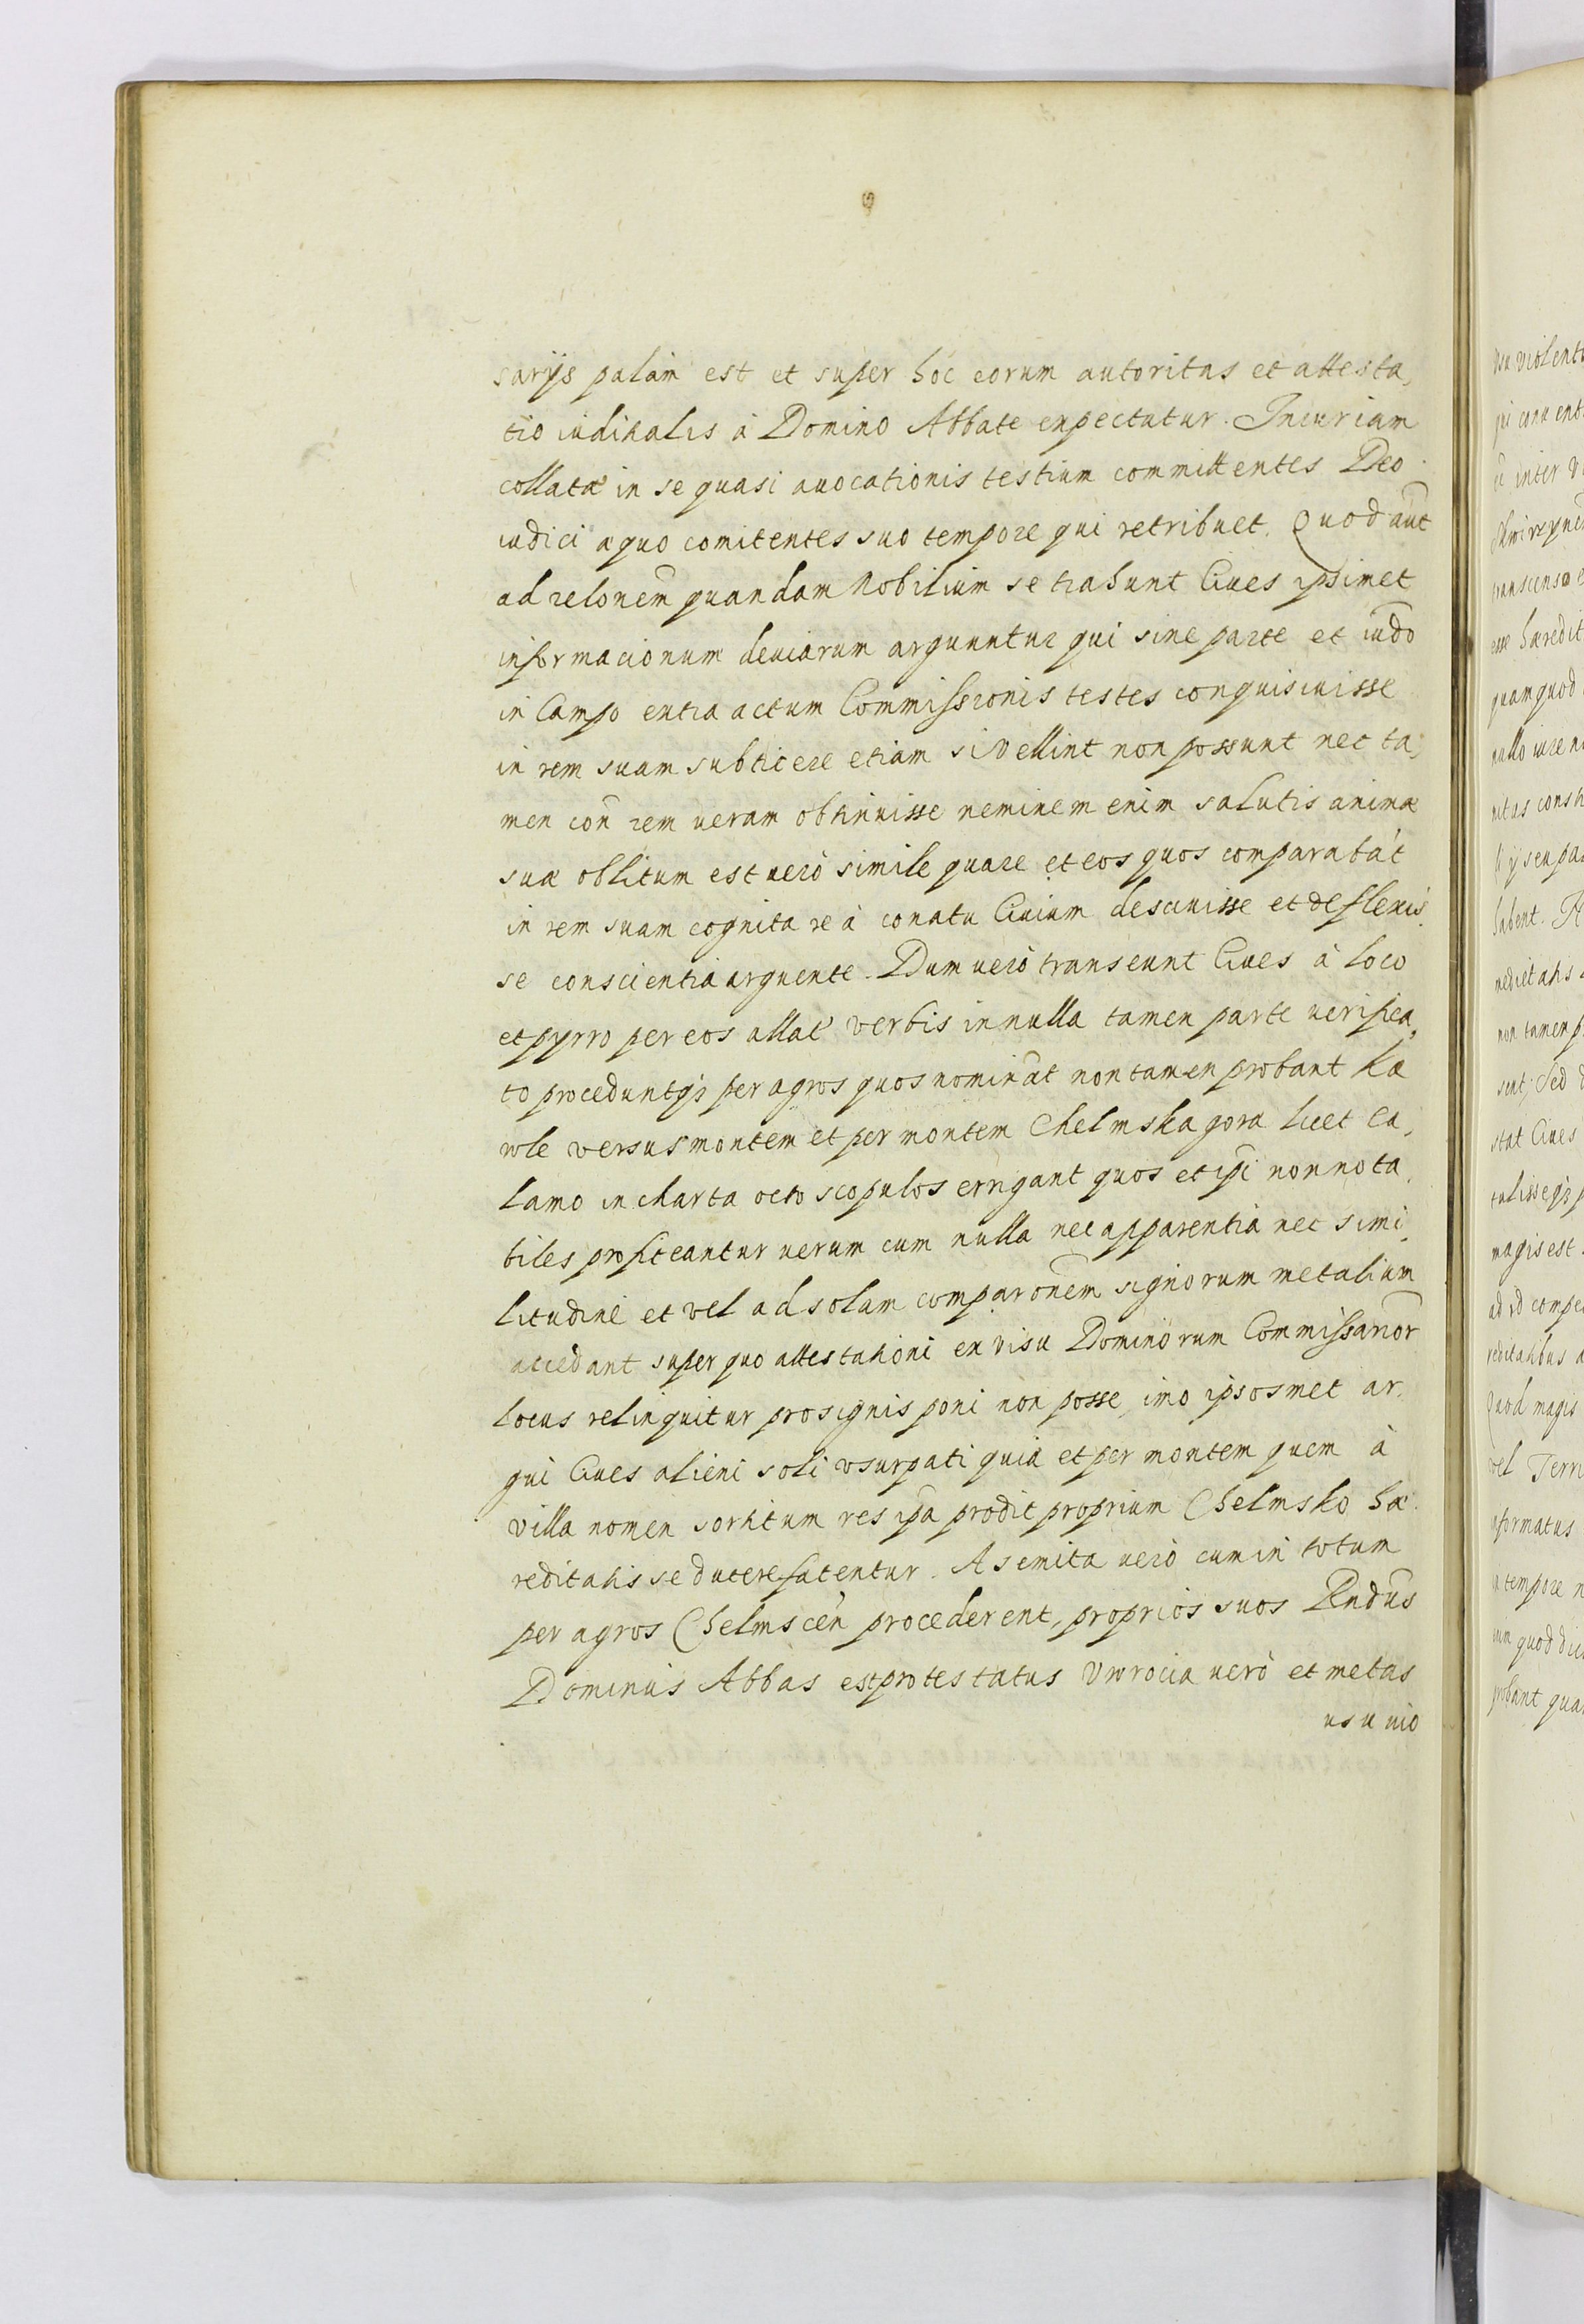 sarijs palàm est et super hoc eorum autoritas et attesta,
tio iudicialis à Domino Abbate expectatur. Iniuriam
collatæ in se quasi auocationis testium committentes Deo
iudici æquo comitentes suo tempore qui retribuet. Quod aut̃
ad relonem̃ quandam Nobilium se trahunt Ciues ipsimet
informacionum deuiarum arguuntur qui sine parte et iudõ
in Campo extra actum Commissionis testes conquisiuisse
in rem suam subticere etiam si vellint non possunt nec ta,
men coñ rem ueram obtinuisse neminem enim salutis animæ
suæ oblitum est uerò simile quare et eos quos comparabãt
in rem suam cognita re à conatu Ciuium desciuisse et deflexis,
se conscientia arguente. Dum uerò transeunt Ciues à loco
et pyrro per eos allat' verbis in nulla tamen parte uerifica,
to proceduntq3 per agros quos nominãt non tamen probant Kæ
role versus montem et per montem Chelmska gora licet Ca,
lamo in charta octo scopulos errigant quos et ipĩ non nota,
biles profiteantur uerum cum nulla nec apparentia nec simi,
litudine et vel ad solam comparonem̃ signorum metalium
accedant super quo attestationi ex visu Dominorum Commissarior̃
locus relinquitur pro signis poni non posse, imo ipsosmet ar,
gui Ciues alieni soli vsurpati quia et per montem quem à
villa nomen sortitum res ipã prodit proprium Chelmsko hæ
reditatis se ducere fatentur. A semita uerò cum in totum
per agros Chelmsceñ procederent, proprios suos Rñdus
Dominus Abbas est protestatus Vwrocia uerò et metas
usu uio